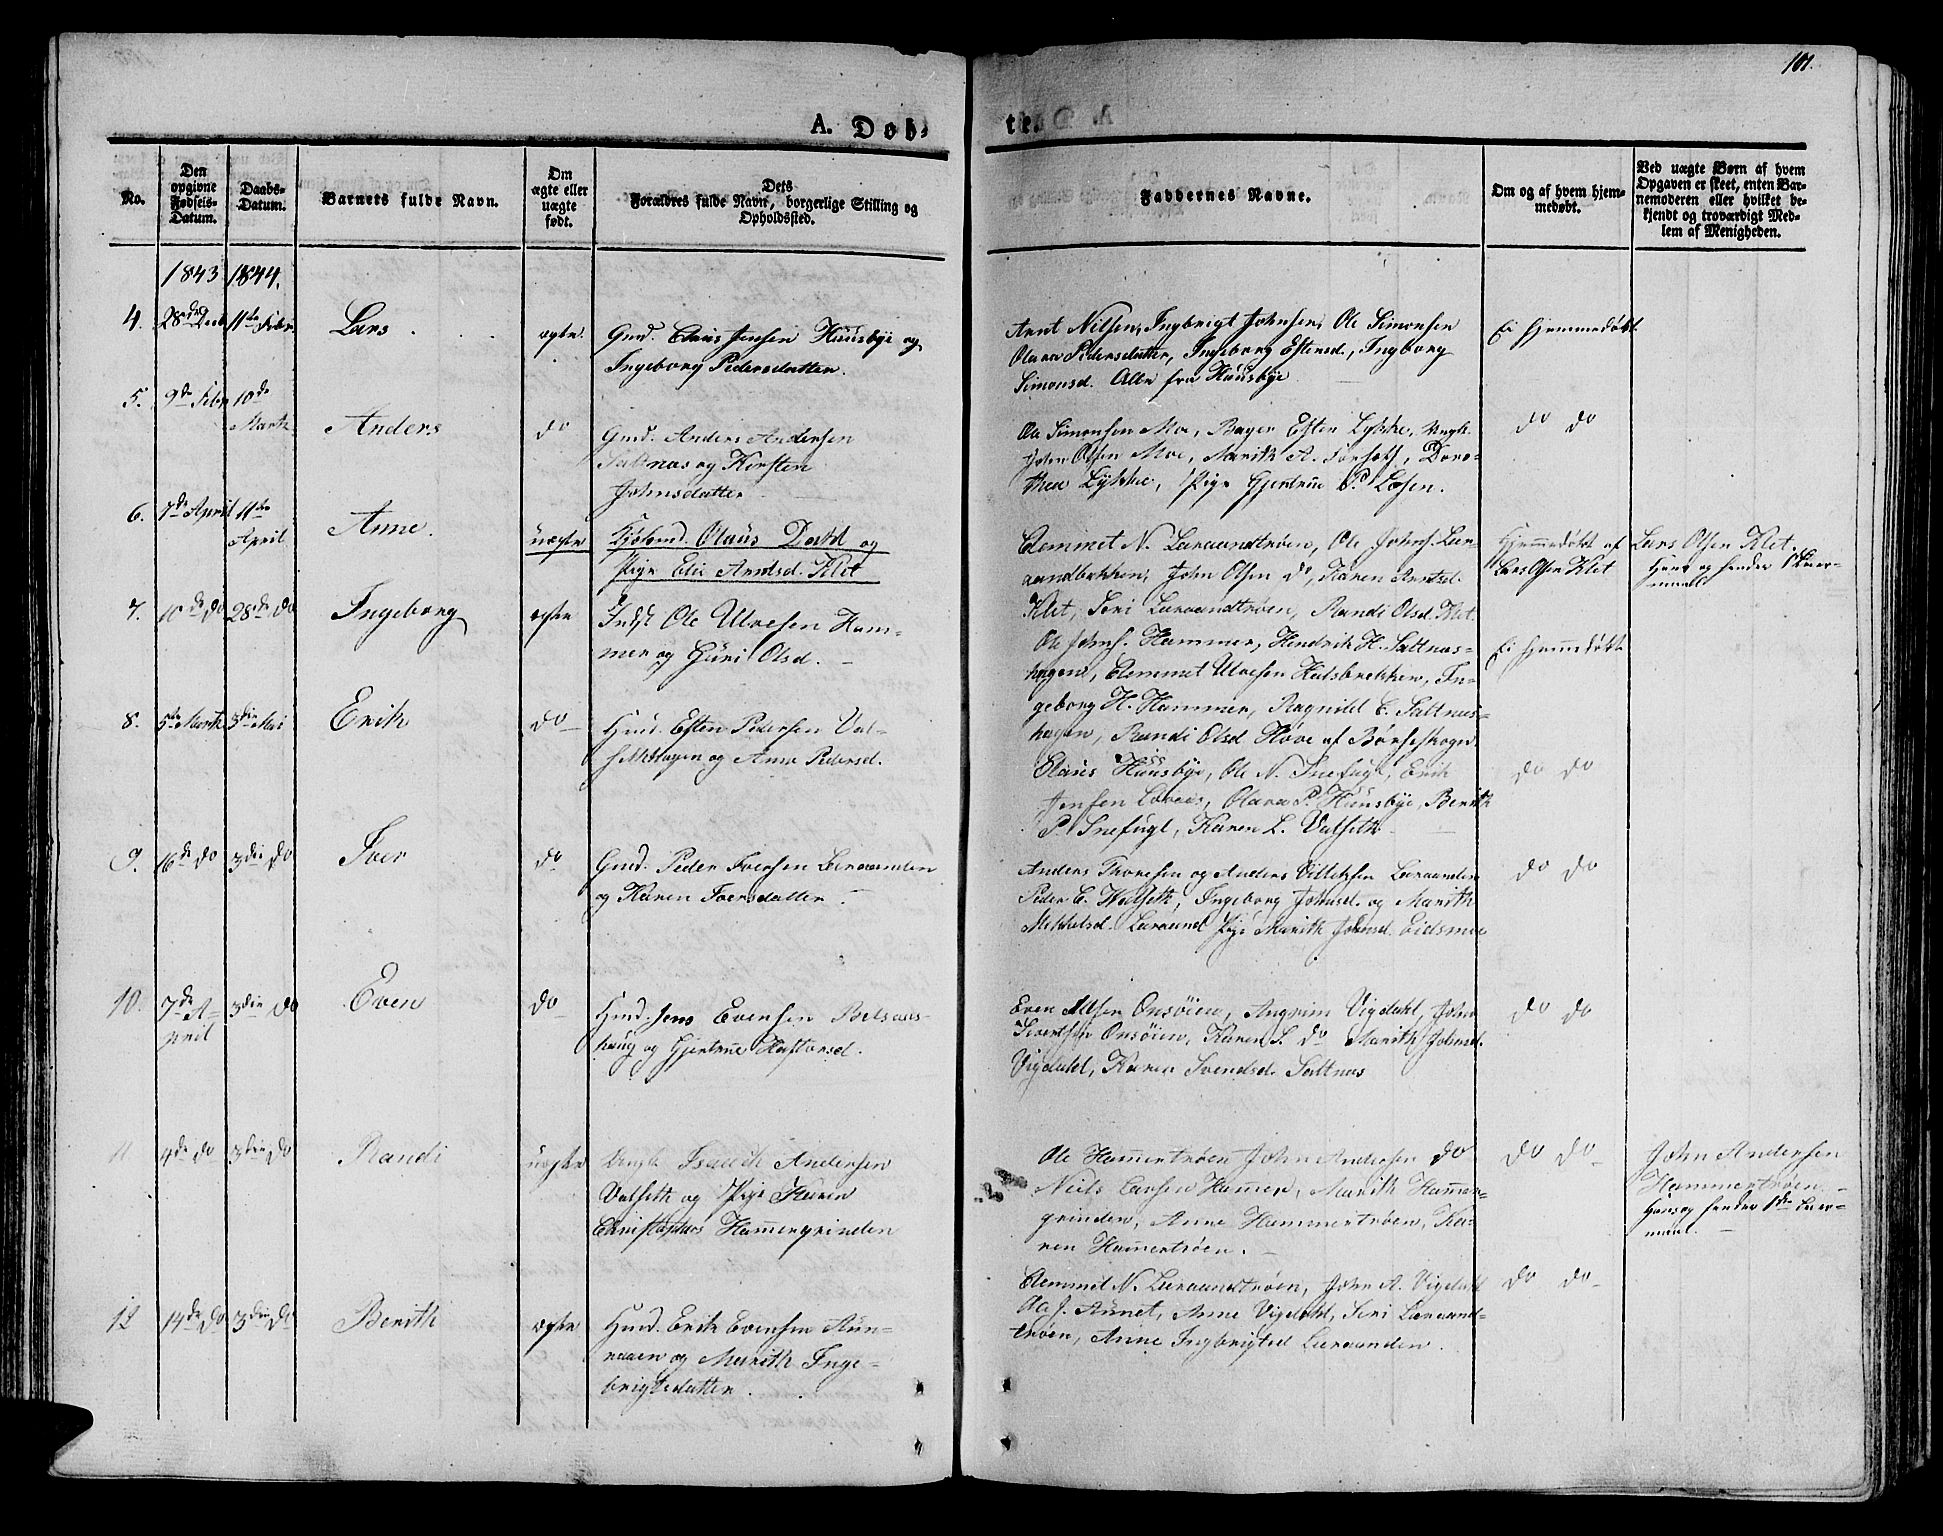 101.
A. Døb-
te.
No.
Den opgivne Fødsels-Datum.
Daabs-Datum.
Barnets fulde Navn.
Om ægte eller uægte født.
Dets Forældres fulde Navn, borgerlige Stilling og Opholdssted.
Faddernes Navne.
Om og af hvem hjemmedøbt.
Ved uægte Børn af hvem Opgaven er skeet, enten Barnemoderen eller hvilket bekjendt og troværdigt Medlem af Menigheden.
1843 1844.
4. 28de Decb 11te Febr. Lars ægte.
Gmd. Claus Jensen Huusbye og
Ingeborg Pedersdatter.
Arnt Nilsen, Ingbrigt Johnsen, Ole Simonsen
Olava Pedersdatter, Ingeborg Estensd., Ingborg
Simonsd. Alle fra Huusbye
Ei hjemmedøbt
5. 9de Febr 10de
Marts Anders do
Gmd. Anders Andersen
Saltnæs og Kirsten
Johnsdatter
Ole Simonsen Moe, Esten Lykke, Ungk.
John Olsen Moe, Marith A. Dorothea Lykke, Pige Gjertrue P.
do do
6. 7de April 11te
April Anne. uægte
Olaus David og
Pige Eli Arntsd. Klet
Clemmet N. Laraandtrøen, Ole Johns. Laraandbakken, John Olsen do, Karen Arntsd.
Klet, Seri Laraandtrøen, Randi Olsd. Klet.
Hjemmedøbt af
Lars Olsen Klet
Lars Olsen Klet.
7. 10de do 28de do Ingeborg ægte
Indst Ole Ulvesen Hammer og Guri Olsd.
Ole Johns. Hammer, Hendrik H. Saltnæshagen, Clemmet Ulvesen Kalsbrekken, Ingeborg H. Hammer, Ragnild C. Saltnæshagen, Randi Olsd Hove af Børseskogn.
Ei hjemmedøbt
8. 5te Marts 3die Mai Erik do
Huusmd. Esten Pedersen Valsethhagen og Ane Pedersd.
Claus Huusbye, Ole N. Snefugl, Erik
Jensen Loraas, Olava P. Huusbye, Berith
P. Snefugl, Karen L. Valseth
do do
9. 16de do 3die do Iver do
Gmd. Peder Iversen Laraanden
og Karen Iversdatter
Anders Thoresen og Anders Laraanden
Peder E. Valseth, Ingeborg Johnsd. og Marith
Mikkelsd. Laraand Pige Marith Johnsd. Eidsmoe
do do
10. 7de April 3die do Even do
Hmd. Jens Evensen Belsaashaug og Gjertrue Hastorsd.
Even Onsøien, Angrim Vigdahl, John
Sivertsen Onsøien, Karen S. do Marith Johnsd.
Vigdahl, Karen Svendsd. Saltnæs
do do
11 4de do 3die do Randi uægte
Ungk. Isach Andersen
Valseth og Pige Karen
Hammergrinden
Ole Hamertrøen John Andersen do
Niels Larsen Hammer, Marith Hamergrinden, Anne Hammertrøen, Karen Hamertrøen.
do do
John Andersen
Hammertrøen
12 14de do 3die do Berith ægte
Hmd. Erik Evensen Aunraaen og Marith Ingebrigtsdatter.
Clemmet N. Laraandtrøen, John A. Vigdahl
Aunet, Anne Vigdahl, Seri Laraandtrøen, Anne Ingbrigtsd Laraanden.
do do